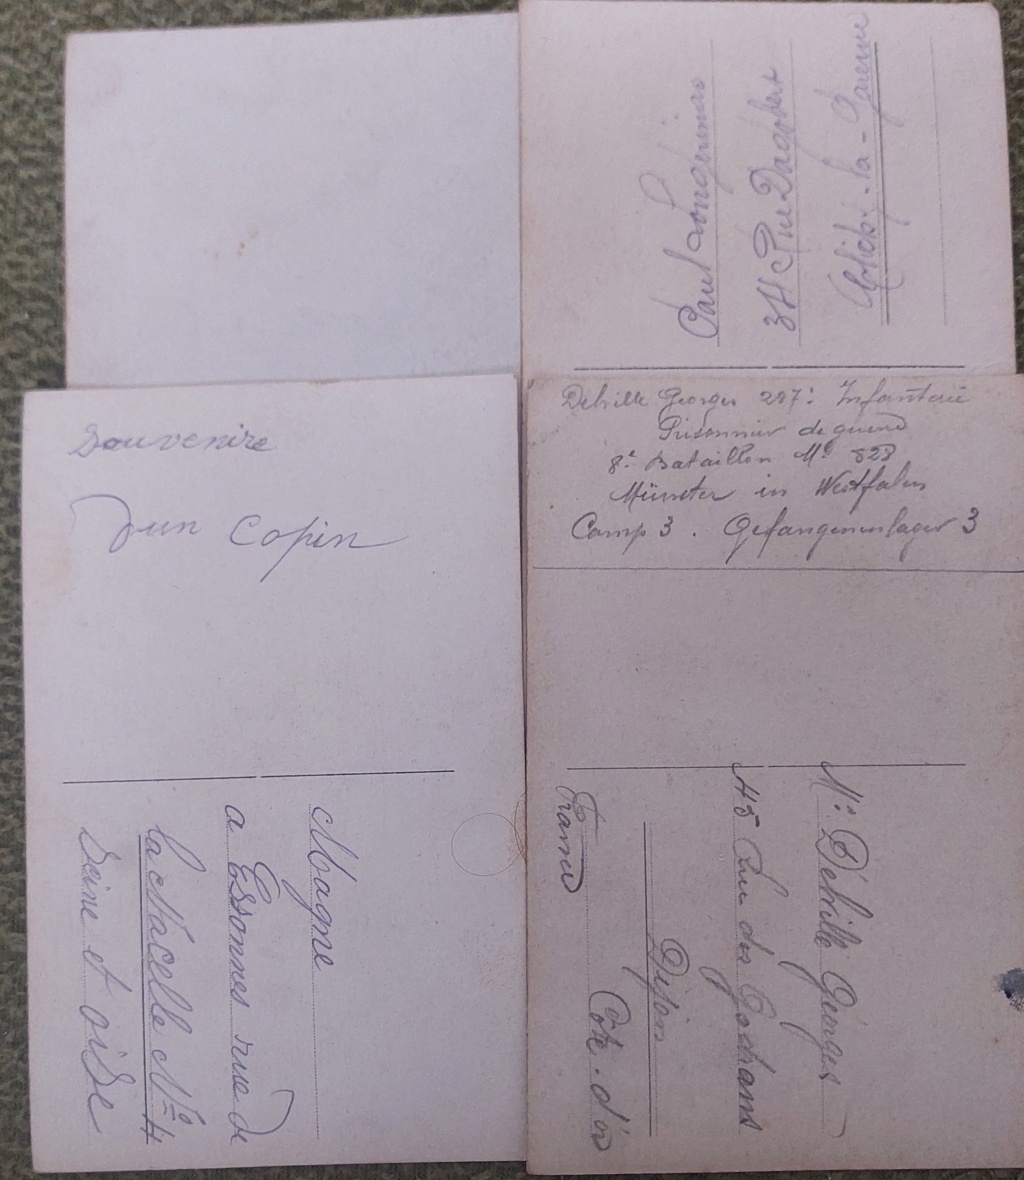 Paul Longuemas
34 Rue Dagobert
Clichy-la-Garenne
Souvenire
d'un Copin
Magne
a Essonnes rue de
la Nacelle Nº 4
Seine et oise
Delville Georges 297e Infanterie
Prisonnier de guerre
8e Bataillon Nº 828
Münster in Westfalen
Camp 3. Gefangenenlager 3
Mr Delville Georges
45 Rue des
Dijon
Côte d'or
France